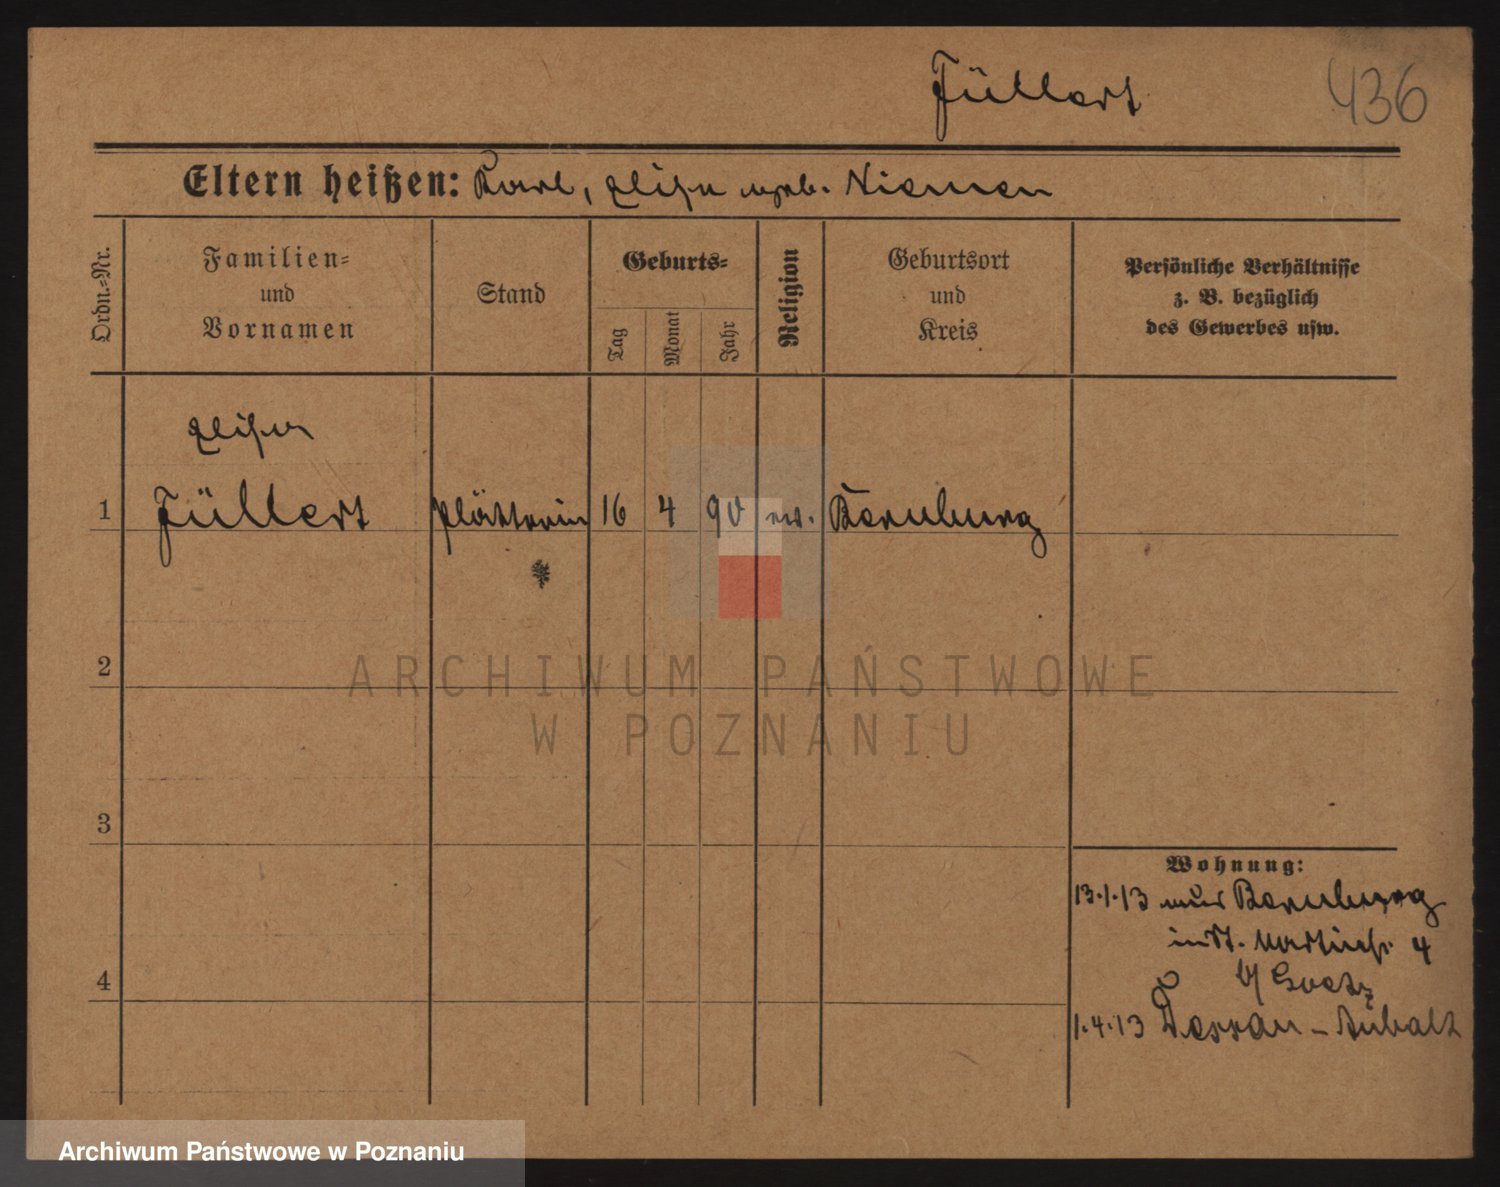 Füllert
436
Eltern heißen: Karl, geb. Niemen
Ordn.-Nr.
Familien-
und
Vornamen
Stand
Geburts-
Tag
Monat
Jahr
Religion
Geburtsort
und
Kreis
Persönliche Verhältnisse
z. B. bezüglich
des Gewerbes usw.
1 Füllert Plätterin 16 4 90 ev. Bernburg
2
ARCHIWUM PAŃSTWOWE
W POZNANIU
3
4
Wohnung:
13.1.13 Bernburg
St. Martinstr. 4
b/ Goetz
1.4.13 Dessau - Anhalt
Archiwum Państwowe w Poznaniu